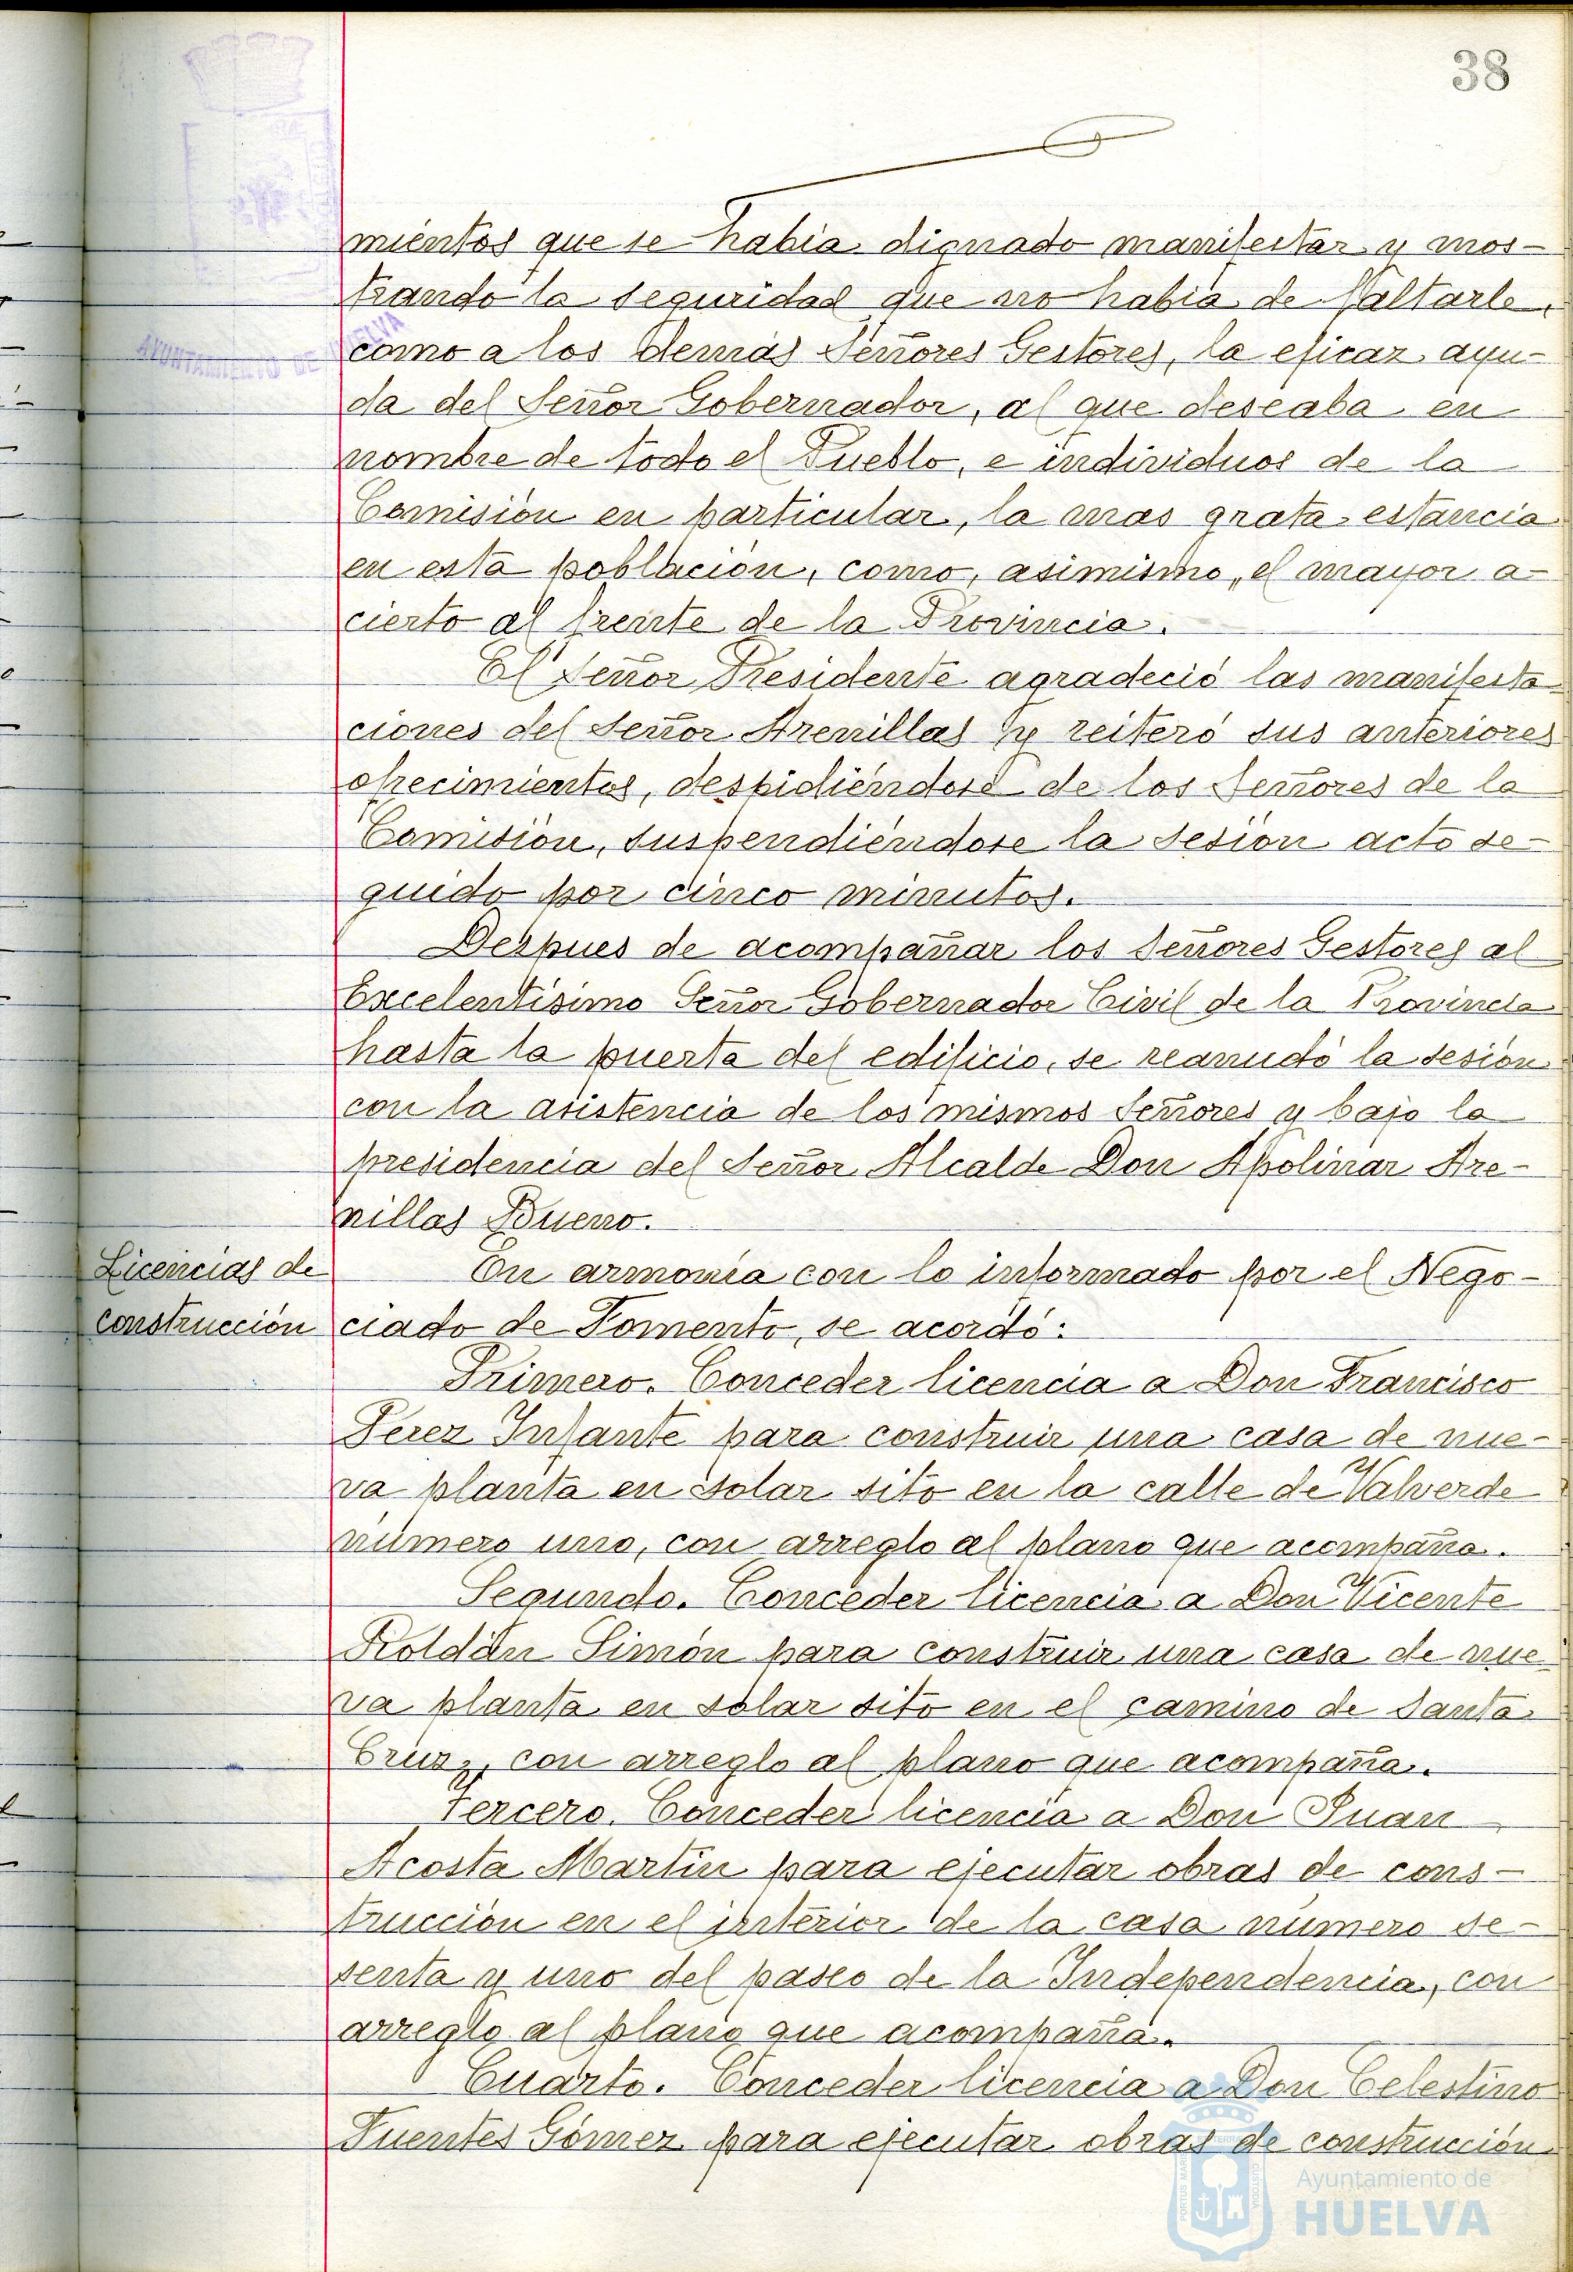 38
mientos que se había dignado manifestar y mos-
trando la seguridad que no había de faltarle,
como a los demás Señores Gestores, la eficaz ayu-
da del Señor Gobernador, al que deseaba en
nombre de todo el Pueblo, e individuos de la
Comisión en particular, la mas grata estancia
en esta población, como, asimismo, el mayor a-
cierto al frente de la Provincia.
El Señor Presidente agradeció las manifesta-
ciones del Señor Arenillas y reiteró sus anteriores
ofrecimientos, despidiéndose de los Señores de la
Comisión, suspendiéndose la sesión acto se-
guido por cinco minutos.
Despues de acompañar los Señores Gestores al
Excelentísimo Señor Gobernador Civil de la Provincia
hasta la puerta del edificio, se reanudó la sesión
con la asistencia de los mismos Señores y bajo la
presidencia del Señor Alcalde Don Apolinar Are-
nillas Bueno.
Licencias de
construcción
En armonía con lo informado por el Nego-
ciado de Fomento, se acordó:
Primero. Conceder licencia a Don Francisco
Perez Infante para construir una casa de nue-
va planta en solar sito en la calle de Valverde
número uno, con arreglo al plano que acompaña.
Segundo. Conceder licencia a Don Vicente
Roldán Simón para construir una casa de nue-
va planta en solar sito en el camino de Santa
Cruz, con arreglo al plano que acompaña.
Tercero. Conceder licencia a Don Juan
Acosta Martín para ejecutar obras de cons-
trucción en el interior de la casa número se-
senta y uno del paseo de la Independencia, con
arreglo al plano que acompaña.
Cuarto. Conceder licencia a Don Celestino
Fuentes Gómez para ejecutar obras de construcción
AYUNTAMIENTO DE HUELVA
Ayuntamiento de
HUELVA